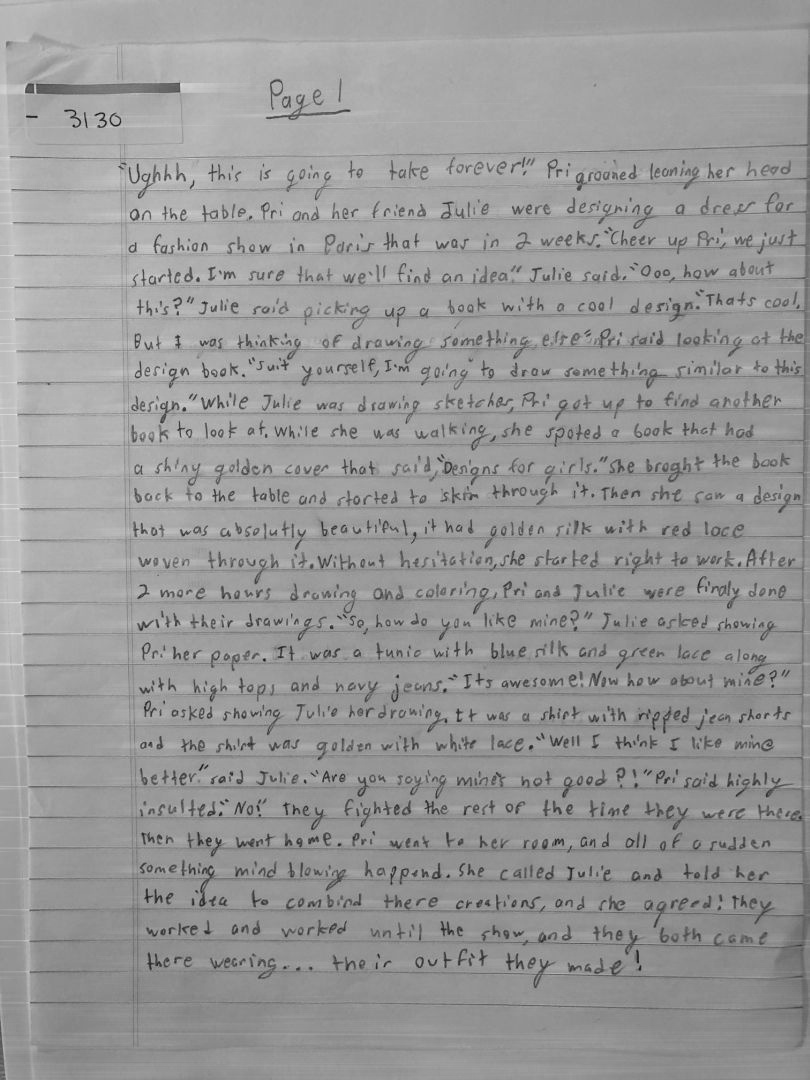 Page 1
- 3130
"Ughhh, this is going to take forever!" Pri groaned leaning her head
on the table. Pri and her friend Julie were designing a dress for
a fashion show in Paris that was in 2 weeks. "Cheer up Pri, we just
started. I'm sure that we'll find an idea." Julie said. "Ooo, how about
this?" Julie said picking up a book with a cool design. "Thats cool.
But I was thinking of drawing something else" Pri said looking at the
design book. "Suit yourself, I'm going to draw something similar to this
design." While Julie was drawing sketches, Pri got up to find another
book to look at. While she was walking, she spoted a book that had
a shiny golden cover that said, "Designs for girls." She broght the book
back to the table and started to skim through it. Then she saw a design
that was absolutly beautiful, it had golden silk with red lace
woven through it. Without hesitation, she started right to work. After
2 more hours drawing and coloring, Pri and Julie were finaly done
with their drawings. "So, how do you like mine?" Julie asked showing
Pri her paper. It was a tunic with blue silk and green lace along
with high tops and navy jeans. "Its awesome! Now how about mine?"
Pri asked showing Julie her drawing. It was a shirt with ripped jean shorts
and the shirt was golden with white lace. "Well I think I like mine
better." said Julie. "Are you saying mine's not good?!" Pri said highly
insulted. "No!" They fighted the rest of the time they were there.
Then they went home. Pri went to her room, and all of a sudden
something mind blowing happend. She called Julie and told her
the idea to combind there creations, and she agreed! They
worked and worked until the show, and they both came
there wearing... their outfit they made!